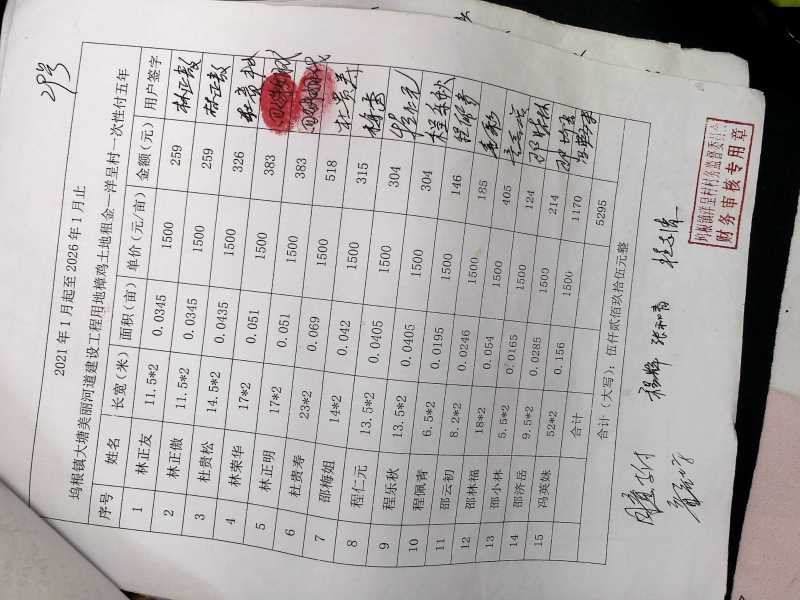 29号
2021年1月起至2026年1月止
坞根镇大塘美丽河道建设工程用地樟鸡土地租金一洋呈村一次性付五年
序号 姓名 长宽(米) 面积(亩) 单价(元/亩) 金额(元) 用户签字
1 林正友 11.5*2 0.0345 1500 259 林正敖
2 林正傲 11.5*2 0.0345 1500 259 林正敖
3 杜贵松 14.5*2 0.0435 1500 326
4 林荣华 17*2 0.051 1500 383
5 林正明 17*2 0.051 1500 383
6 杜贵寿 23*2 0.069 1500 518 杜贵寿
7 邵梅姐 14*2 0.042 1500 315
8 程仁元 13.5*2 0.0405 1500 304
9 程乐秋 13.5*2 0.0405 1500 304
10 程佩青 6.5*2 0.0195 1500 146
11 邵云初 8.2*2 0.0246 1500 185
12 邵林福 18*2 0.054 1500 405
13 邵小林 5.5*2 0.0165 1500 124
14 邵济岳 9.5*2 0.0285 1500 214
15 冯英妹 52*2 0.156 1500 1170
合计 5295
合计(大写):伍仟贰佰玖拾伍元整
坞根镇洋呈村村务监督委员会
财务审核专用章